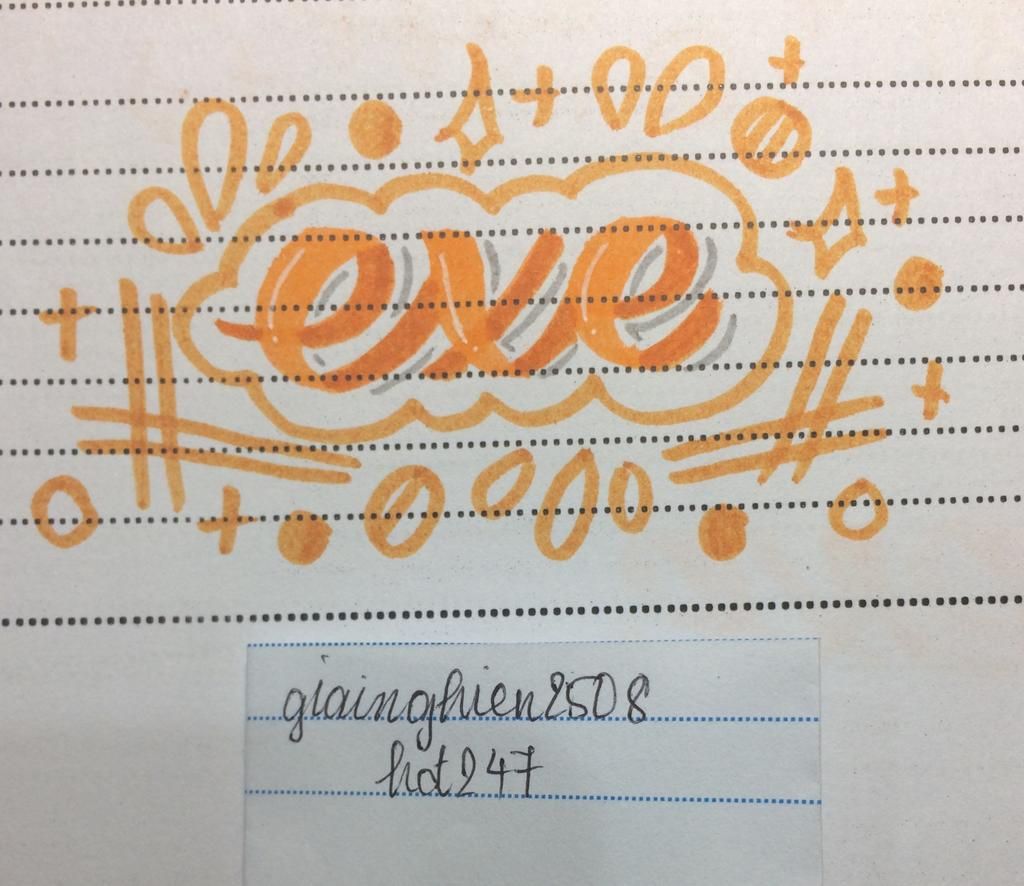 exe
giainghien2508
hot247